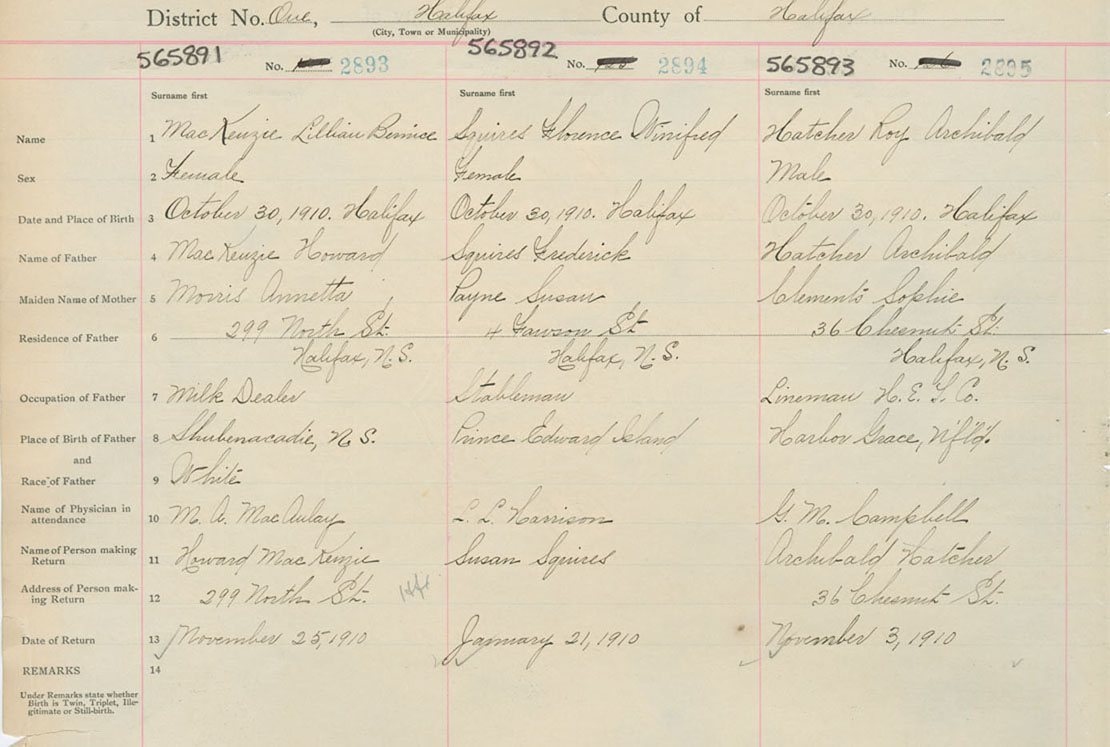 District No. One, Halifax County of Halifax
(City, Town or Municipality)
565891 No. 2893 565892 No. 2894 565893 No. 2895
Surname first Surname first Surname first
Name 1 MacKenzie Lillian Bernice Squires Florence Winifred Hatcher Roy Archibald
Sex 2 Female Female Male
Date and Place of Birth 3 October 30, 1910. Halifax October 30, 1910. Halifax October 30, 1910. Halifax
Name of Father 4 MacKenzie Howard Squires Frederick Hatcher Archibald
Maiden Name of Mother 5 Morris Annetta Payne Susan Clements Sophie
Residence of Father 6 299 North St. 4 Fawson St 36 Chesnut St.
Halifax, N.S. Halifax, N.S. Halifax, N.S.
Occupation of Father 7 Milk Dealer Stableman Lineman H. E. T. Co.
Place of Birth of Father 8 Shubenacadie, N.S. Prince Edward Island Harbor Grace, Nf'l'd.
and
Race of Father 9 White
Name of Physician in
attendance 10 M. A. MacAulay L. L. Harrison G. M. Campbell
Name of Person making
Return 11 Howard MacKenzie Susan Squires Archibald Hatcher
Address of Person mak-
ing Return 12 299 North St. 36 Chesnut St.
Date of Return 13 November 25, 1910 January 21, 1910 November 3, 1910
REMARKS 14
Under Remarks state whether
Birth is Twin, Triplet, Ille-
gitimate or Still-birth.